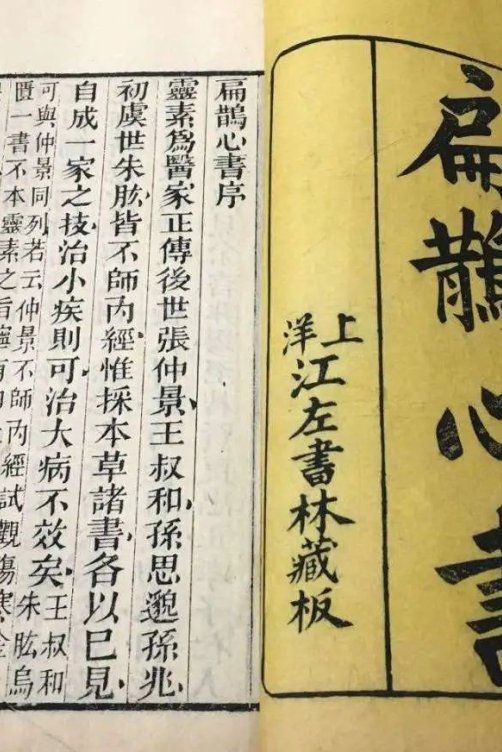 扁鵲心書
上洋江左書林藏板
扁鵲心書序
靈素爲醫家正傳後世張仲景王叔和孫思邈孫兆
初虞世朱肱皆不師内經惟採本草諸書各以已見
自成一家之技治小疾則可治大病不效矣王叔和朱肱烏
可與仲景同列若云仲景不師内經試觀傷寒金
匱一書不本靈素之旨寧有